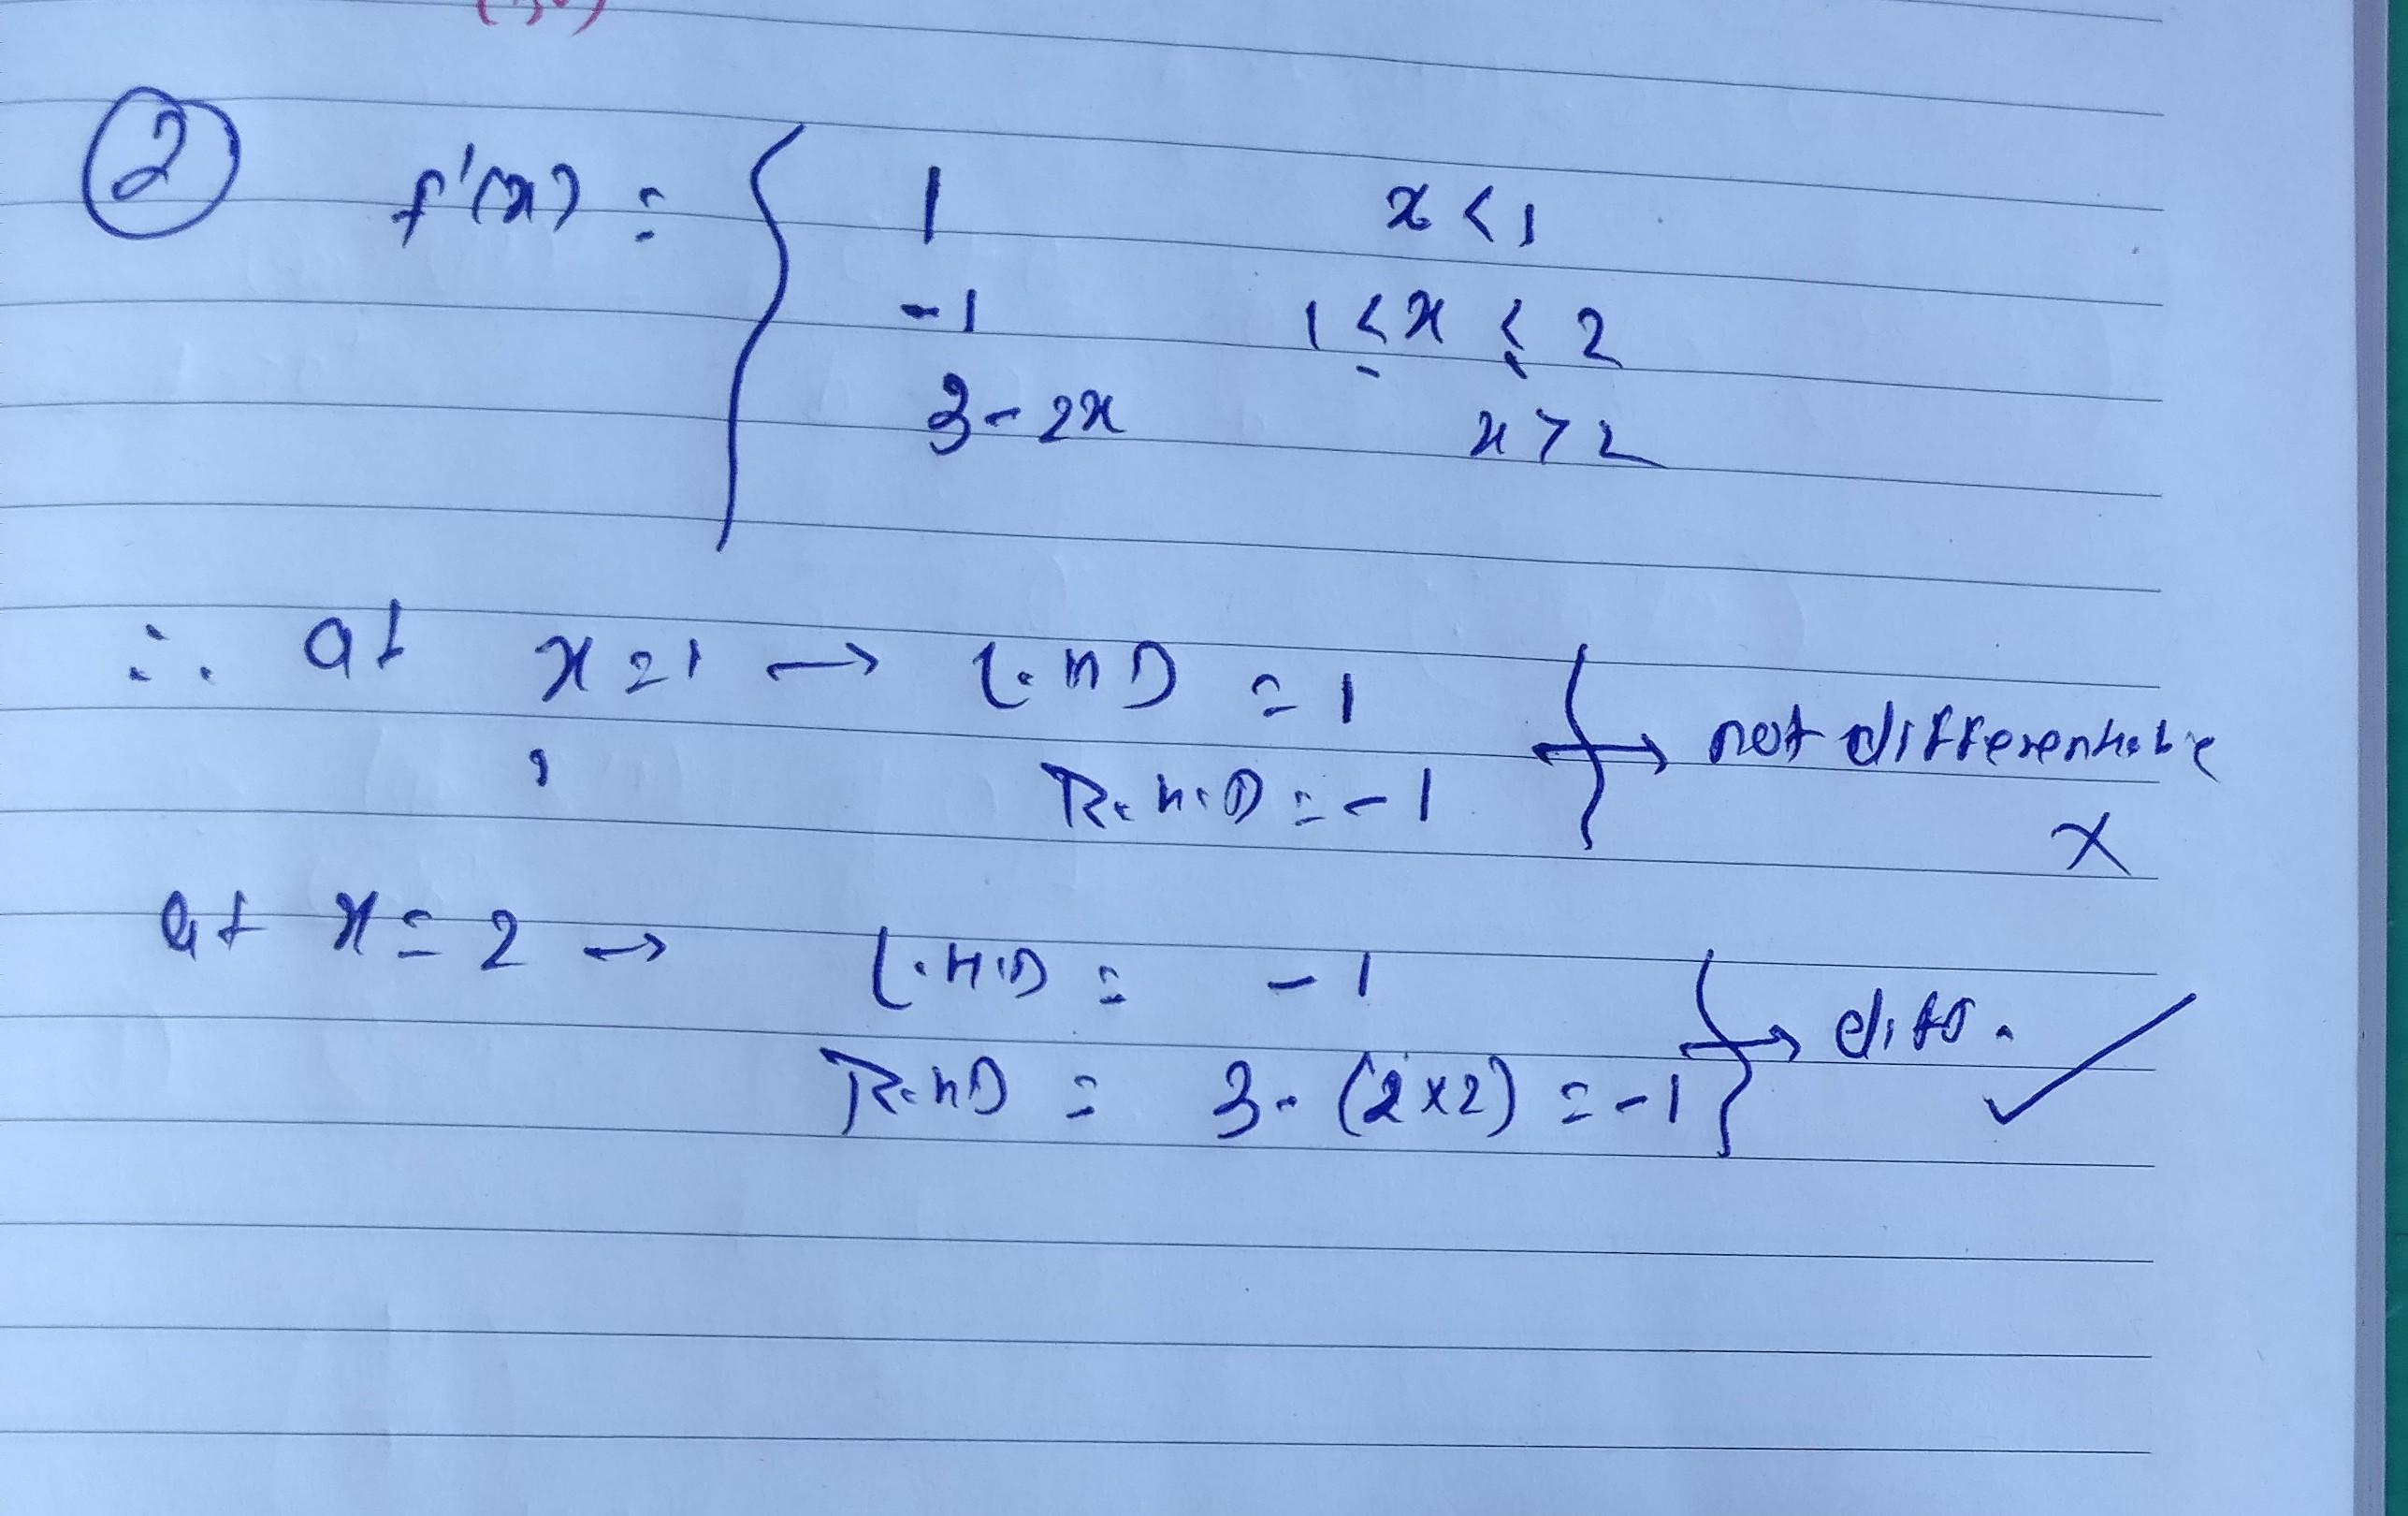 ② f'(x) = { 1 x < 1
-1 1 ≤ x ≤ 2
3 - 2x x > 2
∴ at x = 1 → L.H.D = 1
R.H.D = -1 } → not differentiable
x
at x = 2 → L.H.D = -1
R.H.D = 3 - (2×2) = -1 } → diff. ✓